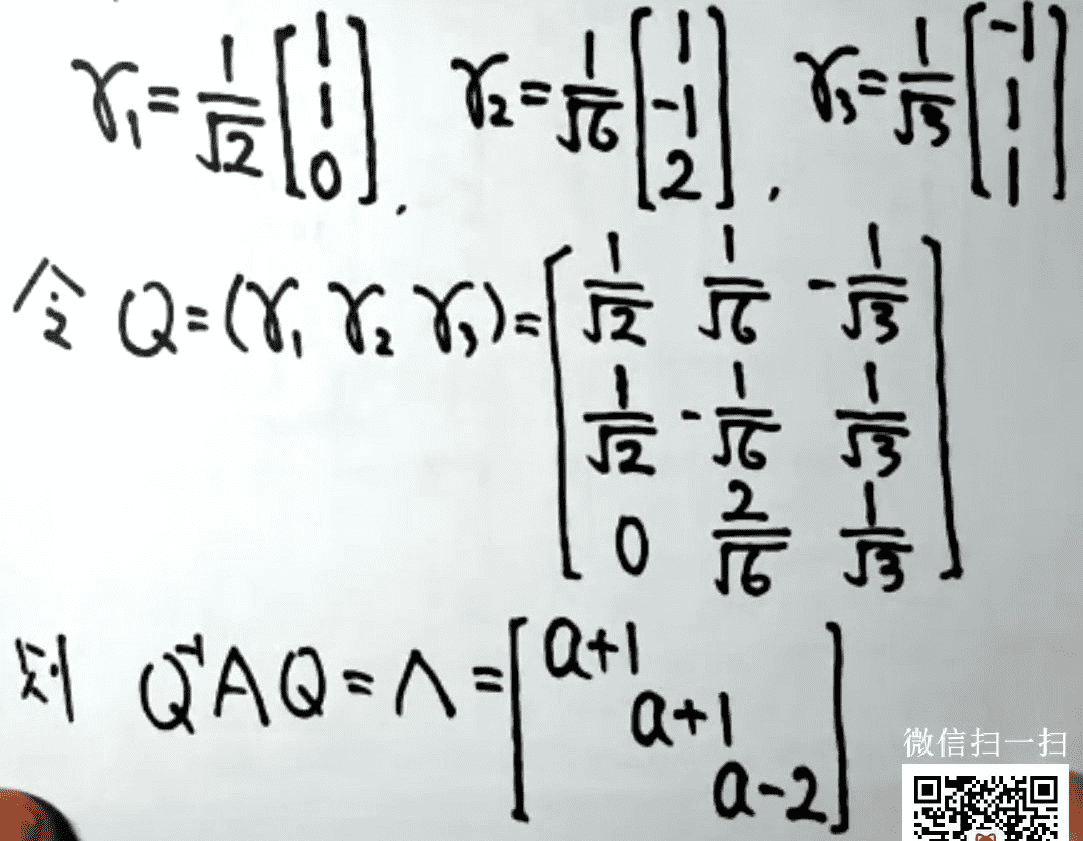 γ₁ = 1/√2 [1 1 0], γ₂ = 1/√6 [1 -1 2], γ₃ = 1/√3 [-1 1 1]
令 Q = (γ₁ γ₂ γ₃) = [1/√2 1/√6 -1/√3
1/√2 -1/√6 1/√3
0 2/√6 1/√3]
则 Q⁻¹AQ = Λ = [a+1
a+1
a-2]
微信扫一扫